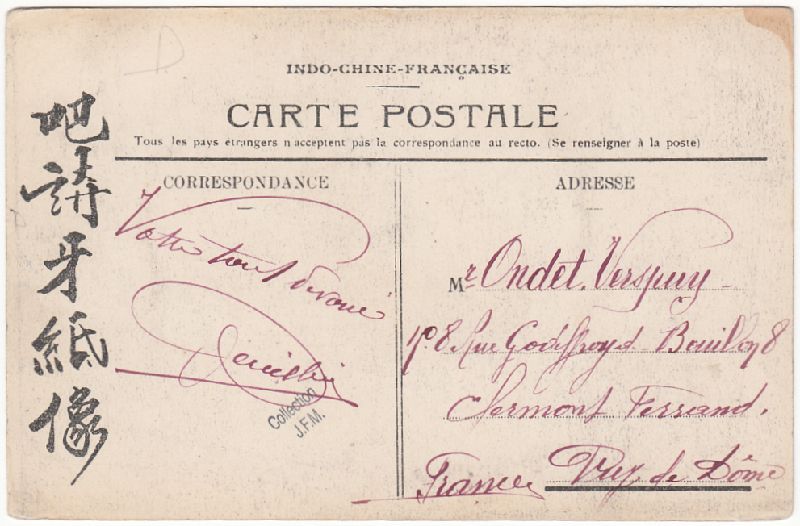 INDO-CHINE-FRANÇAISE
CARTE POSTALE
Tous les pays étrangers n'acceptent pas la correspondance au recto. (Se renseigner à la poste)
吧請牙紙像
CORRESPONDANCE
Votre tout dévoué
Collection
J.F.M.
ADRESSE
Mr Ondet. Verspuy
N° 8 Rue Godeffroyd Bouillon 8
Clermont Ferrand.
France Puy de Dôme